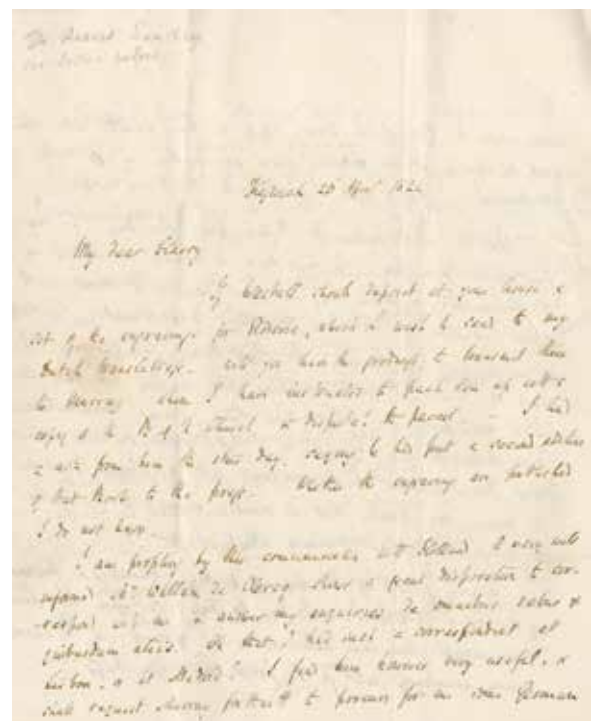 Keswick 25 Apr 1824
My dear
If Westall should deposit at your house a
set of the engravings for Roderic, which I wish to send to my
Dutch translatress. will you have the goodness to transmit them
to Murray whom I have instructed to pack them up with a
copy of the B of the Church, & dispatch the parcel. – I had
a note from him the other day, saying he has put a second edition
of that Book to the press. Whether the engravings are published
I do not know.
I am profiting by this communication with Holland &
Willem de Clercq shows a great disposition to cor-
respond with me & answer my enquiries de omnibus rebus &
quibusdam aliis. Oh that I had such a correspondent at
Lisbon, & at Madrid! I find him very useful, &
shall request Murray to procure for me some German